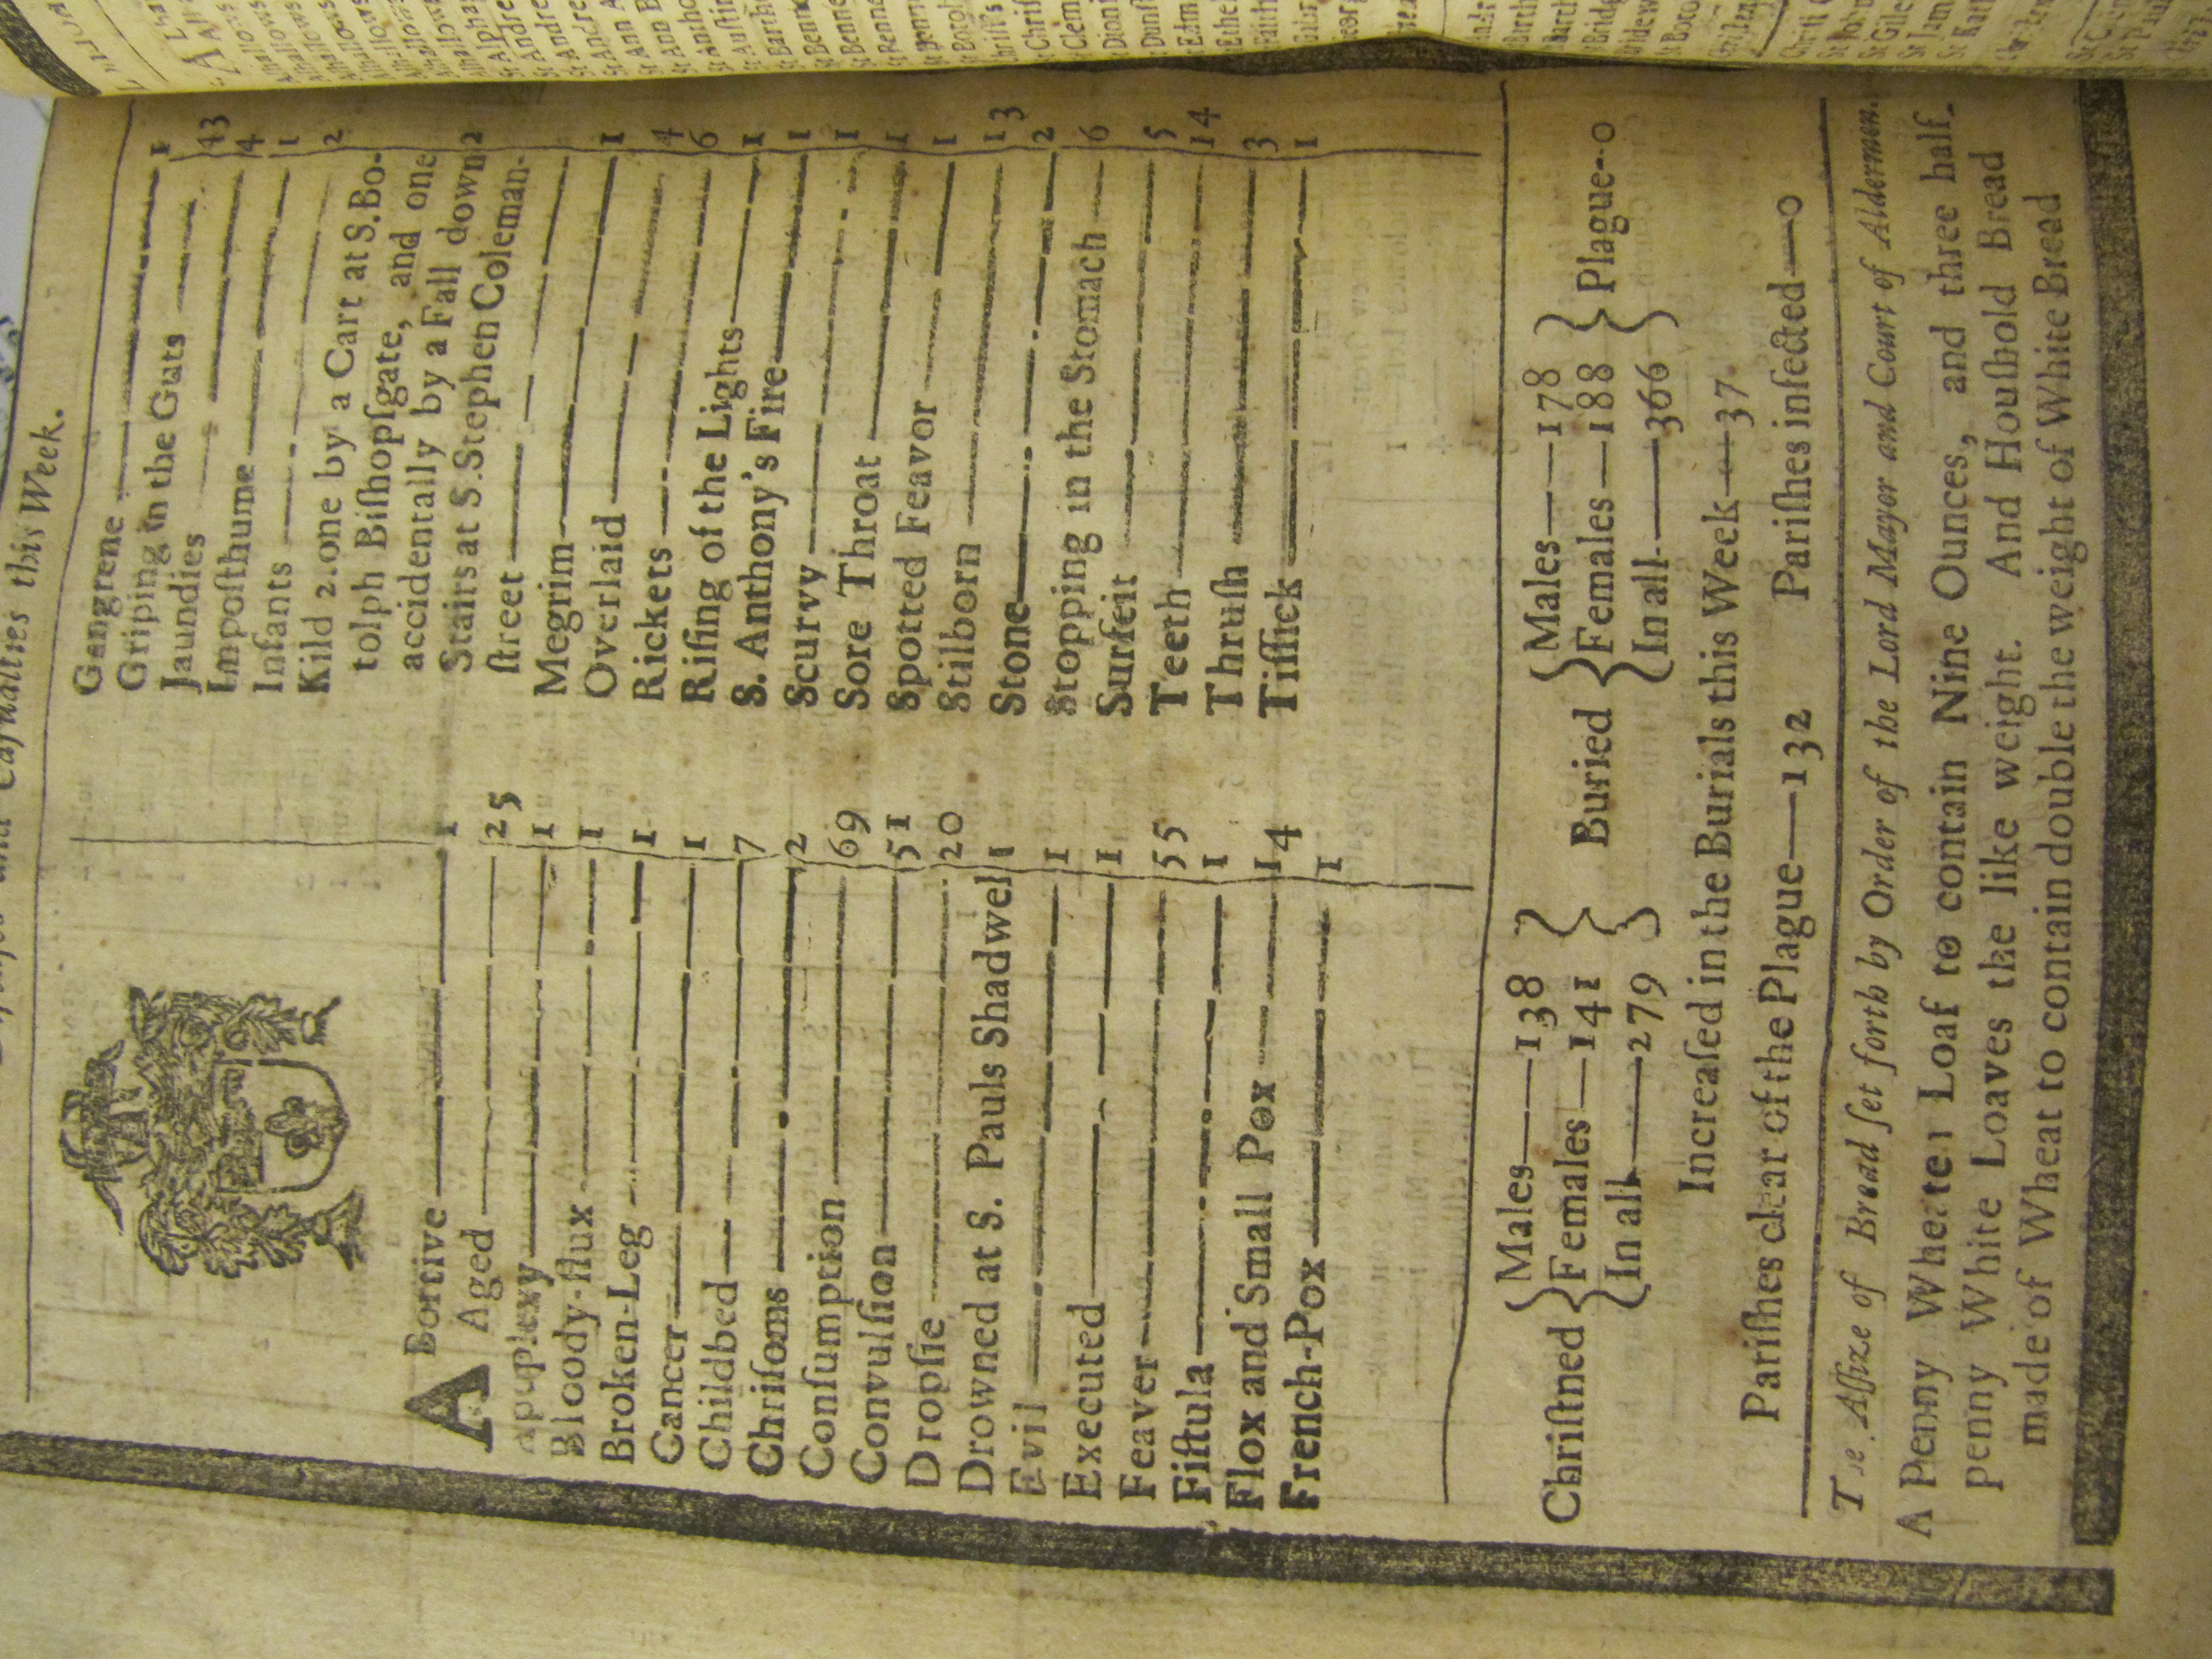 and Caſualties this Week.
ABortive 1
Aged 25
Apoplexy 1
Bloody-flux 1
Broken-Leg 1
Cancer 1
Childbed 7
Chriſoms 2
Conſumption 69
Convulſion 51
Dropſie 20
Drowned at S. Pauls Shadwel 1
Evil 1
Executed 1
Feaver 55
Fiſtula 1
Flox and Small Pox 14
French-Pox 1
Gangrene 1
Griping in the Guts 43
Jaundies 4
Impoſthume 1
Infants 2
Kild 2. one by a Cart at S. Bo-
tolph Biſhopſgate, and one
accidentally by a Fall down 2
Stairs at S. Stephen Coleman-
ſtreet
Megrim 1
Overlaid 4
Rickets 6
Riſing of the Lights 1
S. Anthony's Fire 1
Scurvy 1
Sore Throat 1
Spotted Feavor 1
Stilborn 13
Stone 2
Stopping in the Stomach 6
Surfeit 5
Teeth 14
Thruſh 3
Tiſſick 1
Chriſtned { Males—138 Females—141 In all—279 }
Buried { Males—178 Females—188 In all—366 } Plague--0
Increaſed in the Burials this Week—37
Pariſhes clear of the Plague—132 Pariſhes infected—0
The Aſſize of Bread ſet forth by Order of the Lord Mayor and Court of Aldermen.
A Penny Wheaten Loaf to contain Nine Ounces, and three half-
penny White Loaves the like weight. And Houſhold Bread
made of Wheat to contain double the weight of White Bread